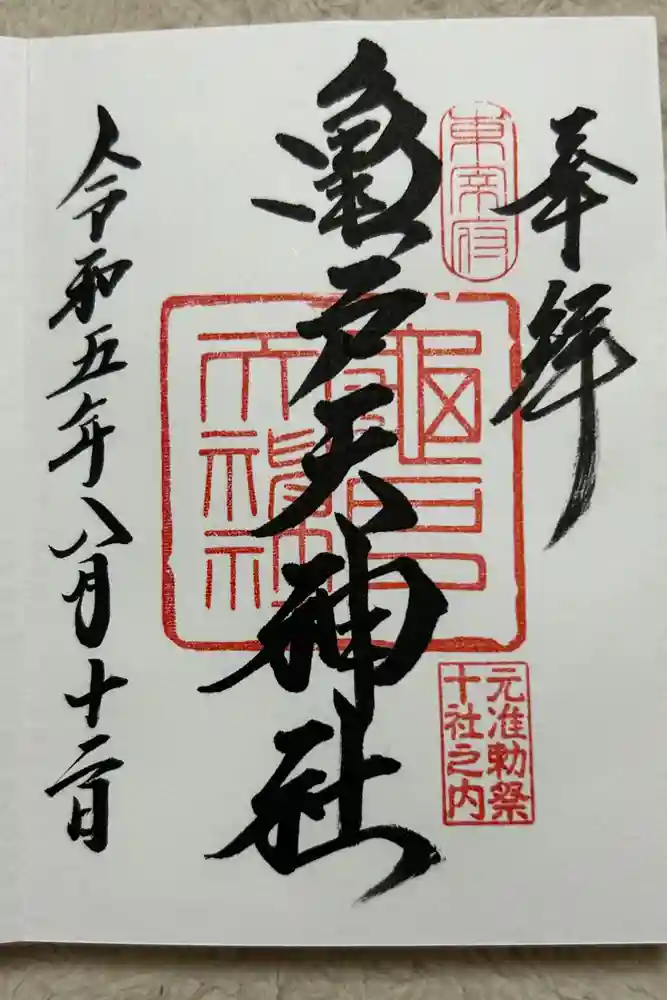 奉拝
東宰府
元准勅祭
十社之内
亀戸天神社
亀戸
天神社
令和五年八月十二日